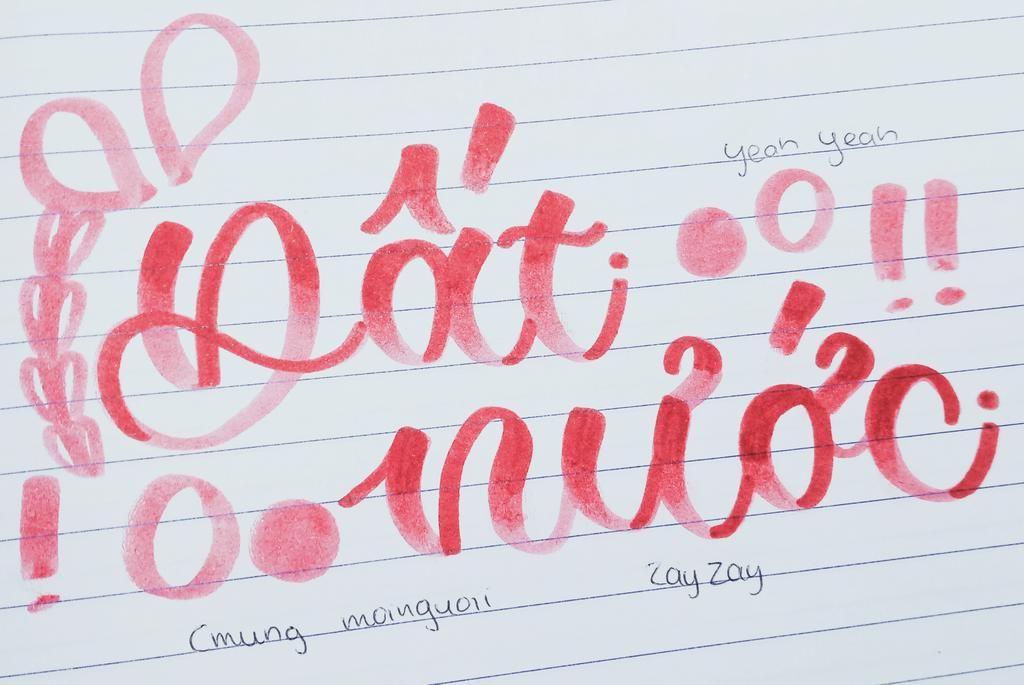 yeah yeah
Đất
nước
zay zay
Cmung moinguoii